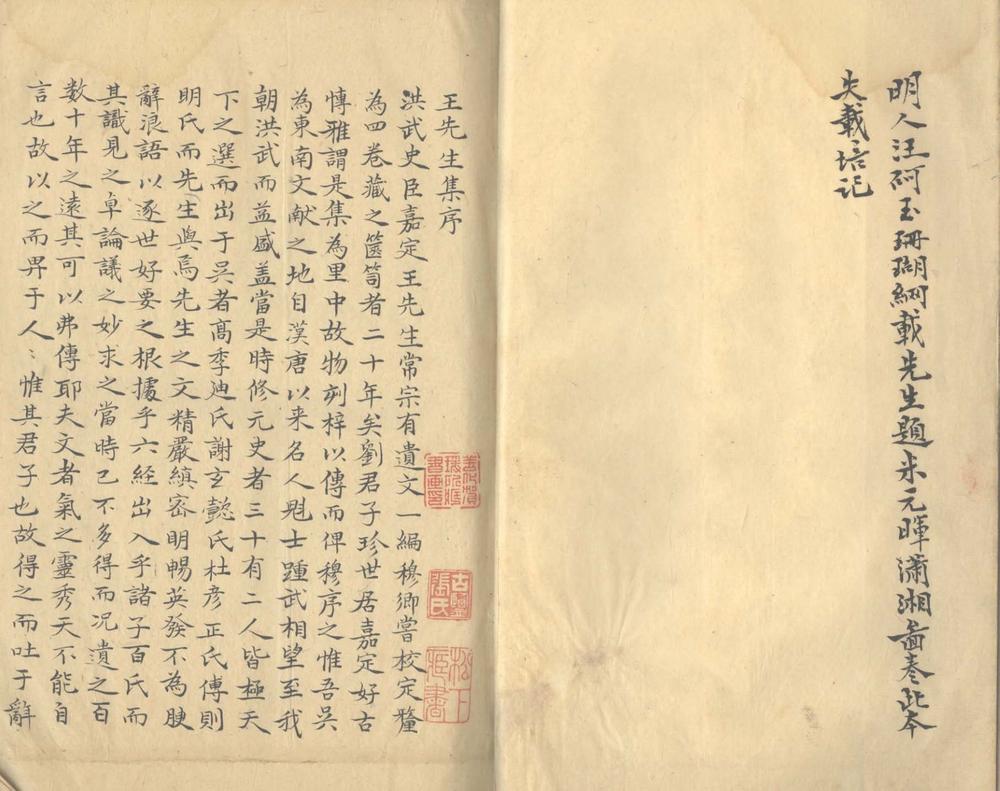 明人汪砢玉珊瑚網載先生題米元暉瀟湘啚卷此本
失載培記
王先生集序
洪武史臣嘉定王先生常宗有遺文一編穆卿嘗校定釐
為四卷藏之篋笥者二十年矣劉君子珍世居嘉定好古
愽雅謂是集為里中故物刻梓以傳而俾穆序之惟吾吳
為東南文献之地自漢唐以来名人魁士踵武相望至我
朝洪武而益盛盖當是時修元史者三十有二人皆極天
下之選而出于吳者髙季迪氏謝玄懿氏杜彦正氏傅則
明氏而先生與焉先生之文精嚴縝密明暢英發不為腴
辭浪語以逐世好要之根㩀乎六経出入乎諸子百氏而
其識見之卓論議之妙求之當時已不多得而况遺之百
数十年之遠其可以弗傳耶夫文者氣之靈秀天不能自
言也故以之而畀于人〻惟其君子也故得之而吐于辭
古鹽
張氏
松下
藏書